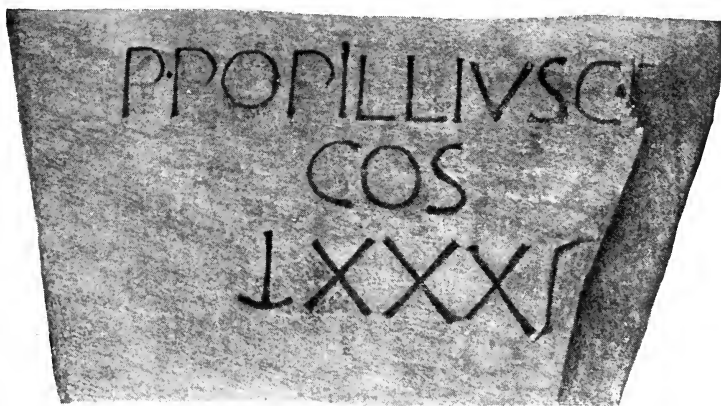 P·POPILLIVS C·F
COS
⊥XXXI